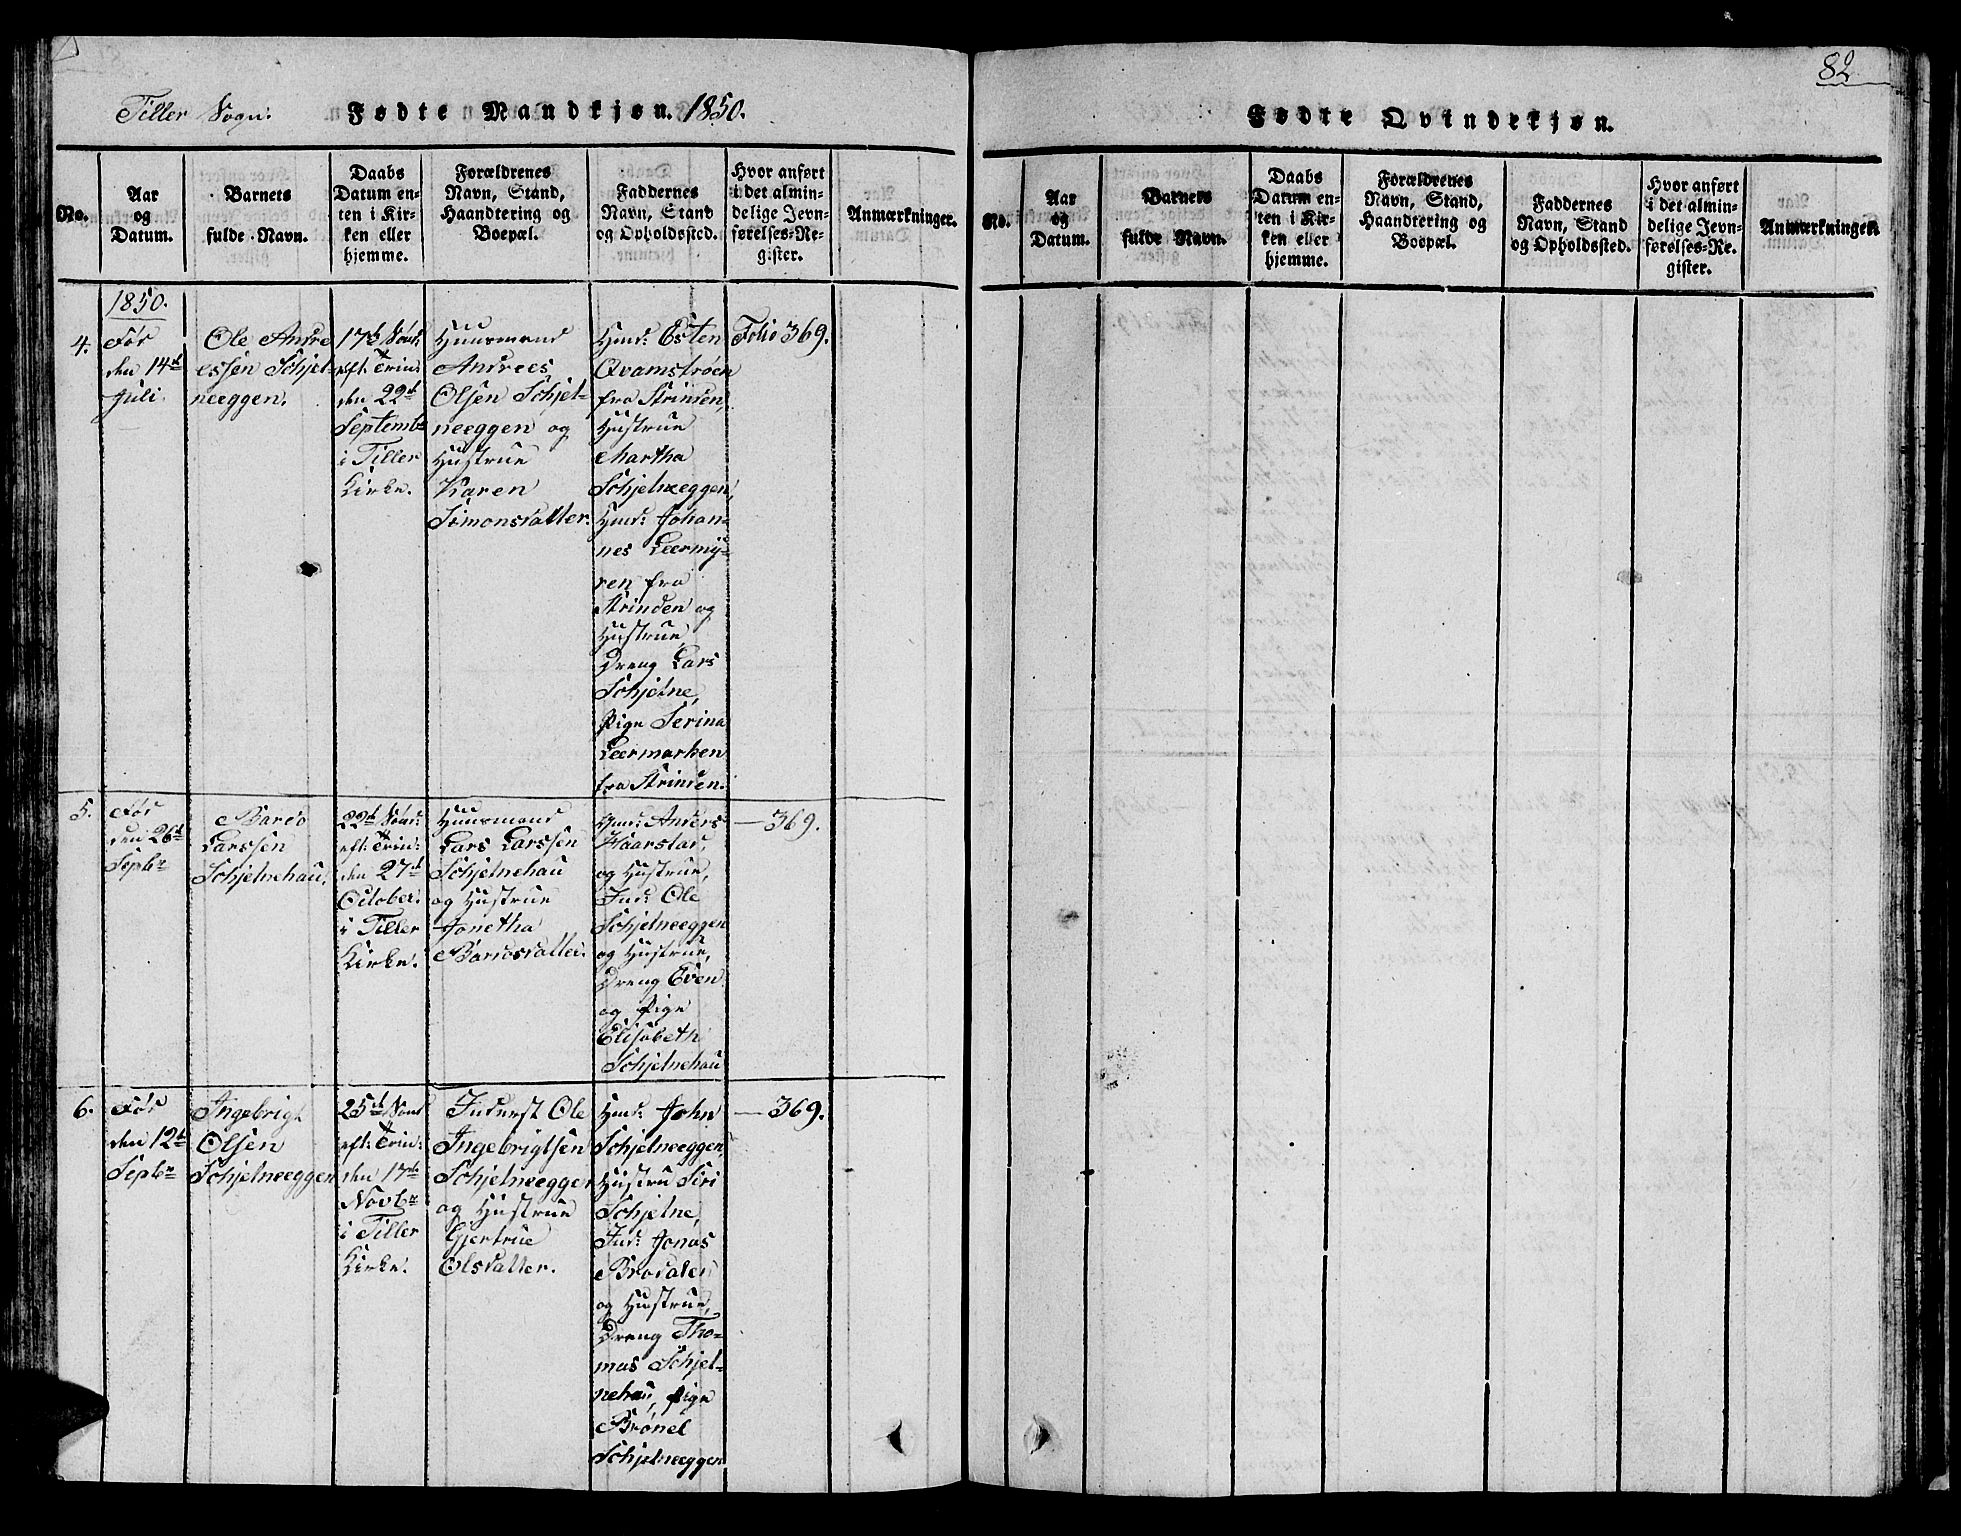 82
Tiller Sogn.
Fødte Mandkjøn. 1850.
No.
Aar
og
Datum.
Barnets
fulde Navn.
Daabs
Datum en-
ten i Kir-
ken eller
hjemme.
Forældrenes
Navn, Stand,
Haandtering og
Boepæl.
Faddernes
Navn, Stand
og Opholdssted.
Hvor anført
i det almin-
delige Jevn-
førelses-Re-
gister.
Anmærkninger.
1850.
4.
Før
den 14de
Juli.
Ole Andre
essen Schjel-
neeggen.
17de Sønd:
eft: Trin:
den 22de
Septembr
i Tiller
Kirke.
Huusmand
Andreas
Olsen Schjel-
neeggen og
Hustrue
Karen
Simonsdatter.
Hmd: Esten
Qvamstrøen
fra Strinden,
Hustrue
Martha
Schjelneeggen,
Hmd: Johan-
nes Leermy-
ren fra
Strinden og
Hustrue,
Dreng Lars
Schjelne,
Pige Serina
Leermarken
fra Strinden.
Folio 369.
5.
Før
den 26de
Septbr
Bardo
Larssen
Schjelnehau.
22de Sønd:
eft: Trin:
den 27de
October.
i Tiller
Kirke.
Huusmand
Lars Larssen
Schjelnehau
og Hustrue
Jonetha
Bardosdatter.
Hmd: Anders
Haarstad,
og Hustrue,
Ind: Ole
Schjelneeggen
og Hustrue,
Dreng Even
og Pige
Elisabeth
Schjelnehau
— 369.
6.
Før
den 12te
Septbr
Ingebrigt
Olsen
Schjelneeggen
25de Sønd
eft: Trin:
den 17de
Novbr
i Tiller
Kirke.
Inderst Ole
Ingebrigtsen
Schjelneeggen
og Hustrue
Gjertrue
Olsdatter.
Hmd: John
Schjelneeggen,
Hustru Siri
Schjelne,
Ind: Jonas
Brodalen
og Hustrue,
Dreng Tho-
mas Schjel-
nehau, Pige
Brønel
Schjelneeggen
— 369.
Fødte Qvindekjøn.
No.
Aar
og
Datum.
Barnets
fulde Navn.
Daabs
Datum en-
ten i Kir-
ken eller
hjemme.
Forældrenes
Navn, Stand,
Haandtering og
Boepæl.
Faddernes
Navn, Stand
og Opholdssted.
Hvor anført
i det almin-
delige Jevn-
førelses-Re-
gister.
Anmærkninger.